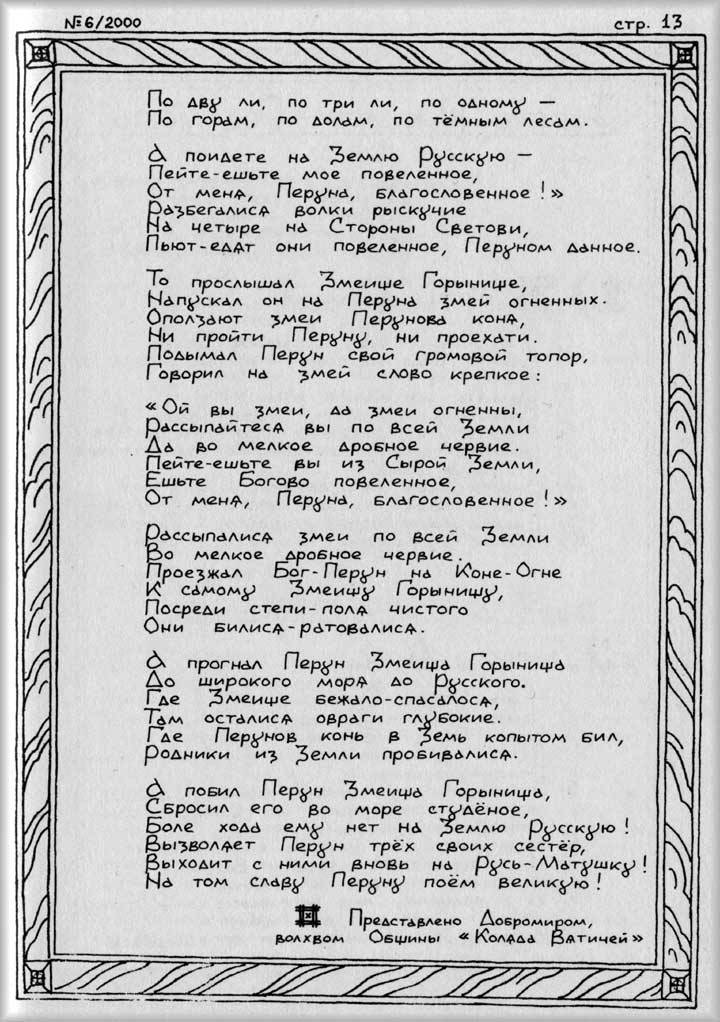 №6/2000
стр. 13
По дву ли, по три ли, по одному —
По горам, по долам, по тёмным лесам.
А поидете на Землю Русскую —
Пейте-ешьте мое повеленное,
От меня, Перуна, благословенное!»
Разбегалися волки рыскучие
На четыре на Стороны Светови,
Пьют-едят они повеленное, Перуном данное.
То прослышал Змеище Горынище,
Напускал он на Перуна змей огненных.
Оползают змеи Перунова коня,
Ни пройти Перуну, ни проехати.
Подымал Перун свой громовой топор,
Говорил на змей слово крепкое:
«Ой вы змеи, да змеи огненны,
Рассыпайтеся вы по всей Земли
Да во мелкое дробное червие.
Пейте-ешьте вы из Сырой Земли,
Ешьте Богово повеленное,
От меня, Перуна, благословенное!»
Рассыпалися змеи по всей Земли
Во мелкое дробное червие.
Проезжал Бог-Перун на Коне-Огне
К самому Змеищу Горынищу,
Посреди степи-поля чистого
Они билися-ратовалися.
А прогнал Перун Змеища Горынища
До широкого моря до Русского.
Где Змеище бежало-спасалося,
Там осталися овраги глубокие.
Где Перунов конь в Земь копытом бил,
Родники из Земли пробивалися.
А побил Перун Змеища Горынища,
Сбросил его во море студёное,
Боле хода ему нет на Землю Русскую!
Вызволяет Перун трёх своих сестёр,
Выходит с ними вновь на Русь-Матушку!
На том славу Перуну поём великую!
Представлено Добромиром,
волхвом Общины «Коляда Вятичей»